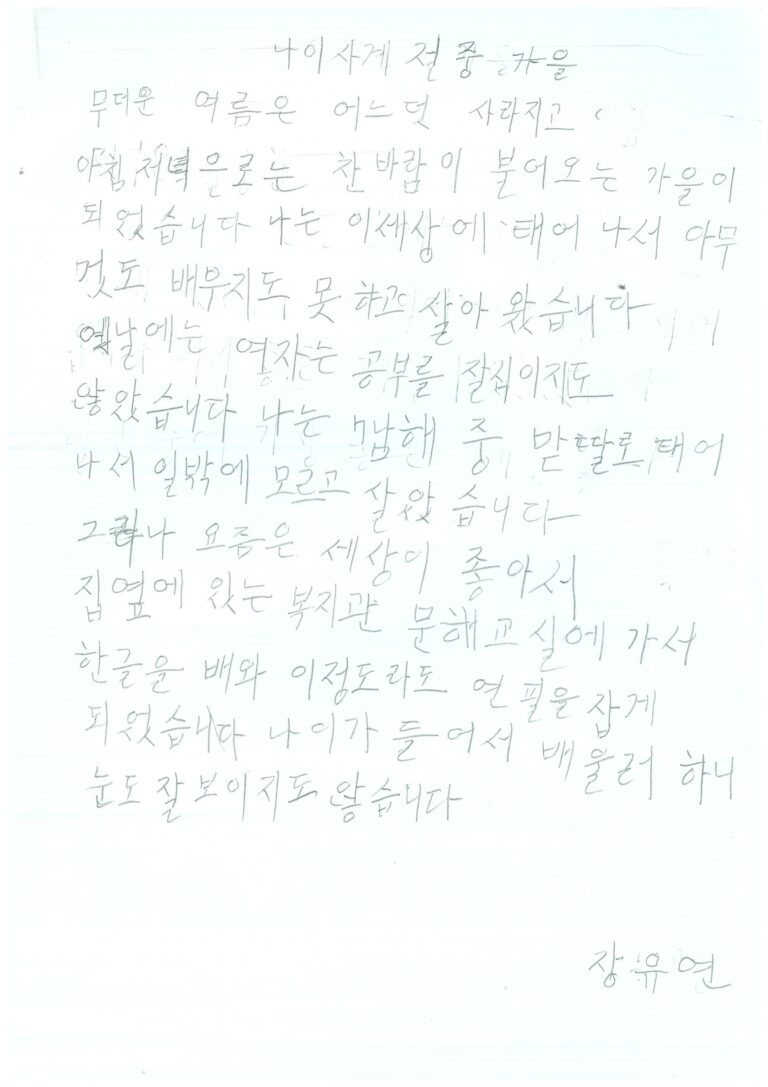 나이사계 전중 가을
무더운 여름은 어느덧 사라지고
아침저녁으로는 찬바람이 불어오는 가을이
되었습니다 나는 이세상에 태어 나서 아무
것도 배우지도 못 하고 살아 왔습니다
옛날에는 여자는 공부를 잘식이지도
않았습니다 나는 남해 중 맏딸로 태어
나서 일밖에 모르고 살았습니다
그러나 요즘은 세상이 좋아서
집옆에 있는 복지관 문해교실에 가서
한글을 배와 이정도라도 연필을 잡게
되었습니다 나이가 들어서 배울러 하니
눈도 잘 보이지도 않습니다
장유연